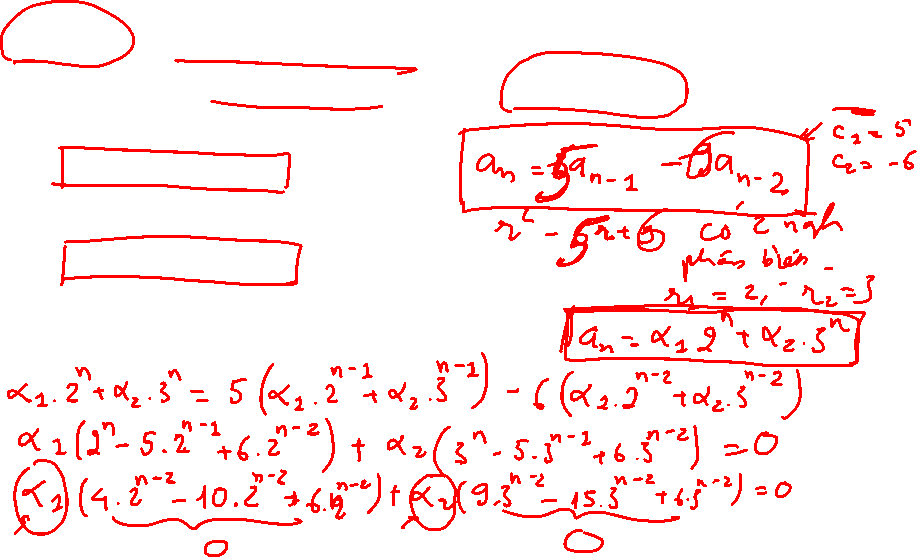 c₁ = 5
c₂ = -6
aₙ = 5aₙ₋₁ - 6aₙ₋₂
r² - 5r + 6 có 2 ngh
phân biệt
r₁ = 2, r₂ = 3
aₙ = α₁ 2ⁿ + α₂ . 3ⁿ
α₁ . 2ⁿ + α₂ . 3ⁿ = 5 (α₁ . 2ⁿ⁻¹ + α₂ . 3ⁿ⁻¹) - 6 (α₁ . 2ⁿ⁻² + α₂ . 3ⁿ⁻²)
α₁ (2ⁿ - 5.2ⁿ⁻¹ + 6.2ⁿ⁻²) + α₂ (3ⁿ - 5.3ⁿ⁻¹ + 6.3ⁿ⁻²) = 0
α₁ (4.2ⁿ⁻² - 10.2ⁿ⁻² + 6.2ⁿ⁻²) + α₂ (9.3ⁿ⁻² - 15.3ⁿ⁻² + 6.3ⁿ⁻²) = 0
0 0